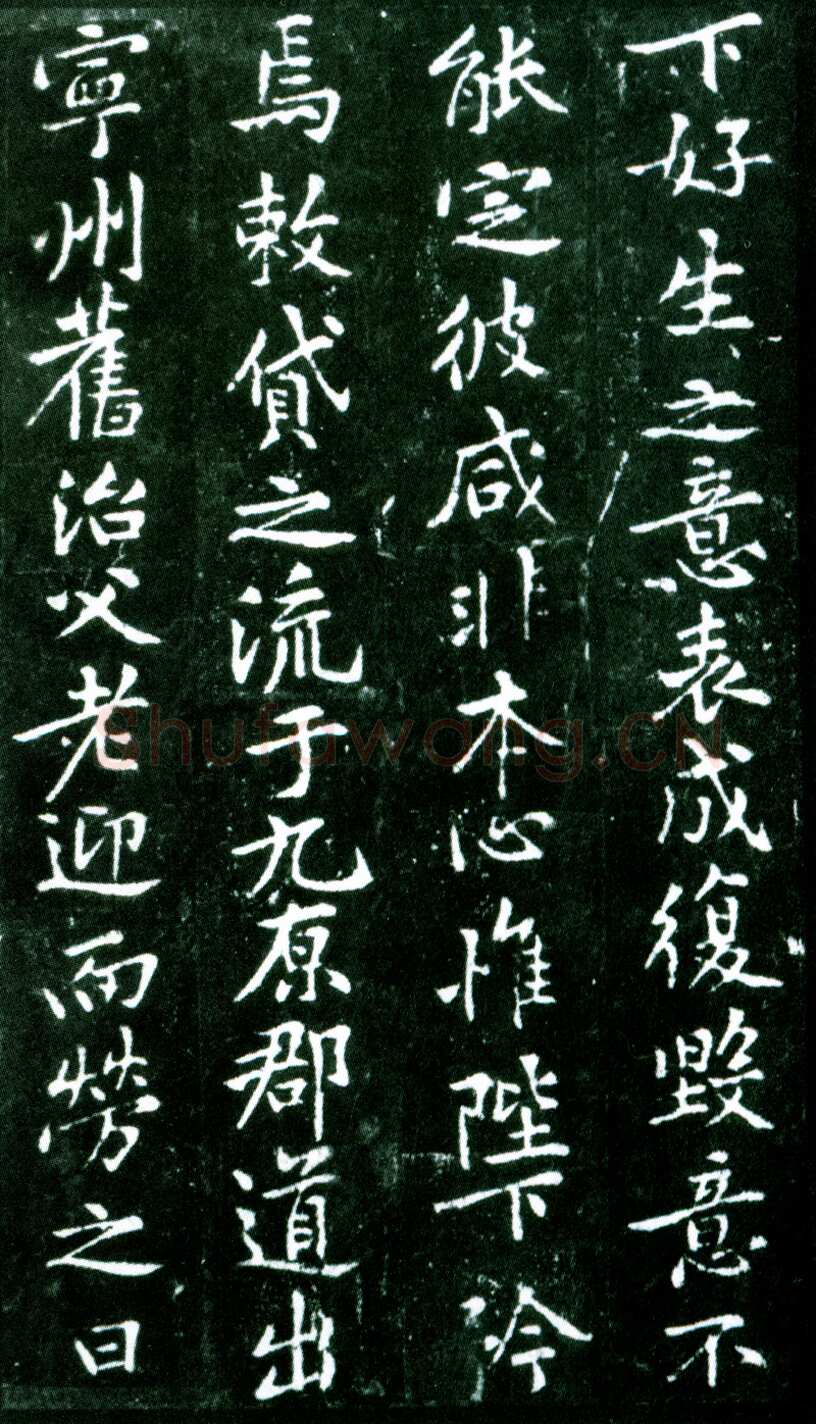 下好生之意表成復毀意不
能定彼咸非本心惟陛下矜
焉敕貸之流于九原郡道出
寧州舊治父老迎而勞之曰
Shufawang.CN